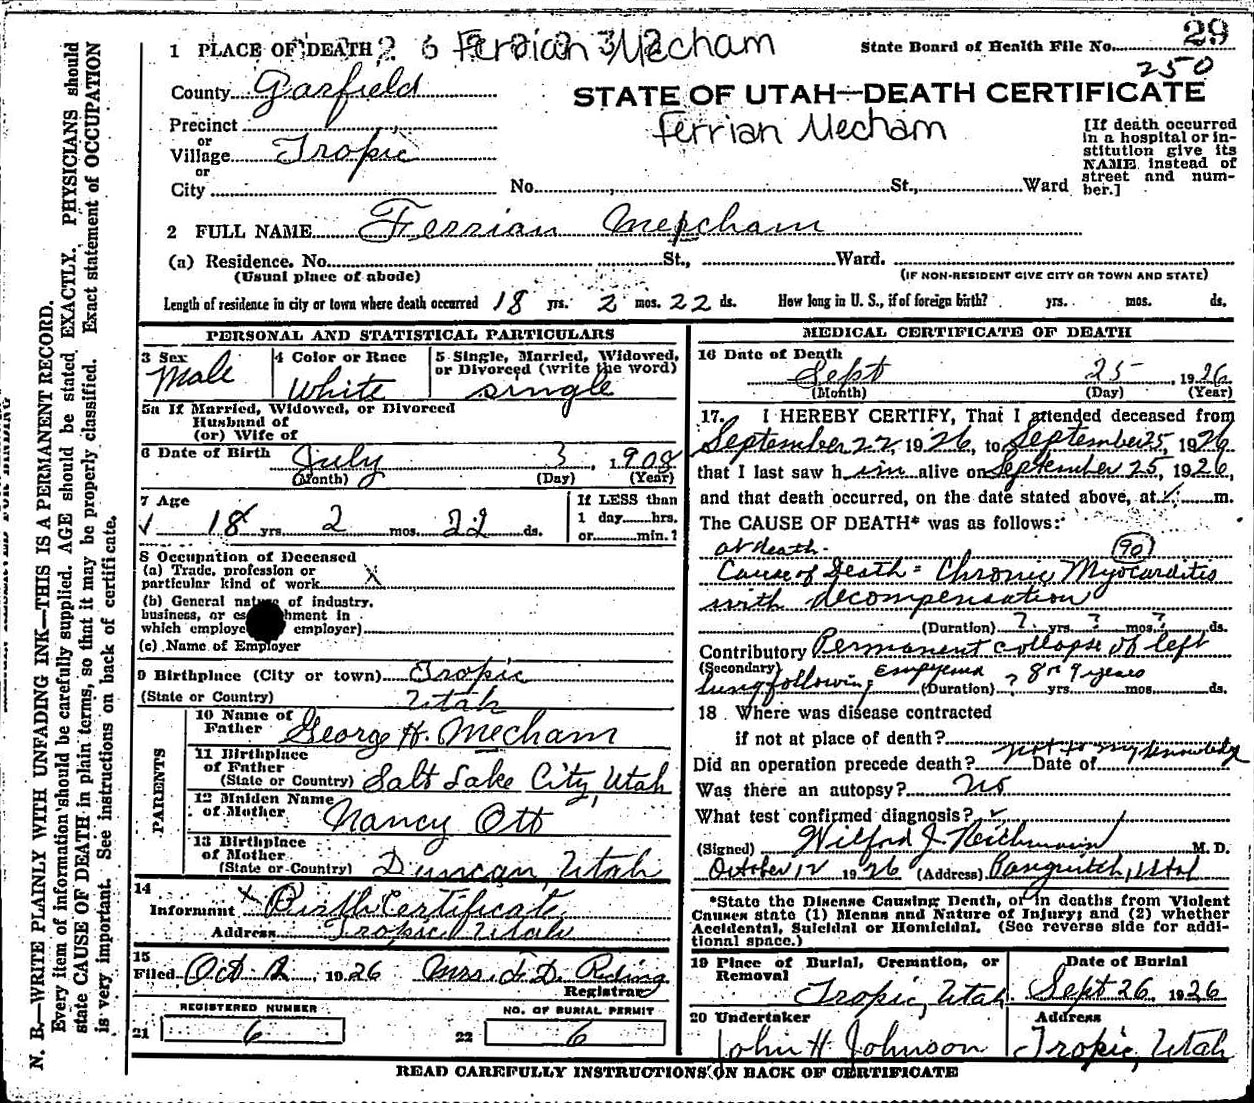 29
State Board of Health File No.
250
1 PLACE OF DEATH
Ferrian Mecham
County Garfield
STATE OF UTAH—DEATH CERTIFICATE
Ferrian Mecham
Precinct
or
Village Tropic
or
City
No. St., Ward
[If death occurred in a hospital or institution give its NAME instead of street and number.]
2 FULL NAME Ferrian Mecham
(a) Residence. No. St., Ward.
(Usual place of abode)
(IF NON-RESIDENT GIVE CITY OR TOWN AND STATE)
Length of residence in city or town where death occurred 18 yrs. 2 mos. 22 ds. How long in U. S., if of foreign birth? yrs. mos. ds.
PERSONAL AND STATISTICAL PARTICULARS
3 Sex Male
4 Color or Race White
5 Single, Married, Widowed, or Divorced (write the word) single
5a If Married, Widowed, or Divorced
Husband of
(or) Wife of
6 Date of Birth July 3, 1908
(Month) (Day) (Year)
7 Age
18 yrs. 2 mos. 22 ds.
If LESS than
1 day hrs.
or min.?
8 Occupation of Deceased
(a) Trade, profession or
particular kind of work X
(b) General nature of industry,
business, or es hment in
which employe employer)
(c) Name of Employer
9 Birthplace (City or town) Tropic
(State or Country) Utah
PARENTS
10 Name of Father George H. Mecham
11 Birthplace of Father
(State or Country) Salt Lake City, Utah
12 Maiden Name of Mother Nancy Ott
13 Birthplace of Mother
(State or Country) Duncan, Utah
14
Informant X Birth Certificate
Address Tropic, Utah
15
Filed Oct 12, 1926 Mrs. Riding
Registrar
REGISTERED NUMBER
21 6
NO. OF BURIAL PERMIT
22 6
MEDICAL CERTIFICATE OF DEATH
16 Date of Death
Sept 25, 1926
(Month) (Day) (Year)
17. I HEREBY CERTIFY, That I attended deceased from
September 22, 1926, to September 25, 1926
that I last saw h im alive on September 25, 1926,
and that death occurred, on the date stated above, at m.
The CAUSE OF DEATH* was as follows:
at death. 90
Cause of Death = Chronic Myocarditis
with decompensation
(Duration) ? yrs. ? mos. ? ds.
Contributory Permanent collapse of left
(Secondary)
lung following Empyema ? 8 or 9 years
(Duration) yrs. mos. ds.
18 Where was disease contracted
if not at place of death?
not to my knowledge
Did an operation precede death? Date of
Was there an autopsy? No
What test confirmed diagnosis?
(Signed) Wilford J. M. D.
October 12 1926 (Address) Panguitch, Utah
*State the Disease Causing Death, or in deaths from Violent
Causes state (1) Means and Nature of Injury; and (2) whether
Accidental, Suicidal or Homicidal. (See reverse side for addi-
tional space.)
19 Place of Burial, Cremation, or Removal
Tropic, Utah
Date of Burial
Sept 26, 1926
20 Undertaker
John H. Johnson
Address
Tropic, Utah
READ CAREFULLY INSTRUCTIONS ON BACK OF CERTIFICATE
N. B.—WRITE PLAINLY WITH UNFADING INK—THIS IS A PERMANENT RECORD.
Every item of information should be carefully supplied. AGE should be stated EXACTLY. PHYSICIANS should
state CAUSE OF DEATH in plain terms, so that it may be properly classified. Exact statement of OCCUPATION
is very important. See instructions on back of certificate.